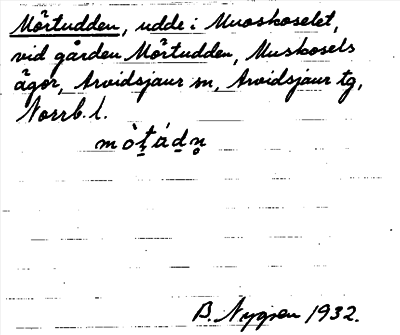 Mörtudden, udde i Muoskoselet,
vid gården Mörtudden, Muskosels
ägor, Arvidsjaur sn, Arvidsjaur tg,
Norrb. l.
mò̤ṯáḏn̥
B. Nygren 1932.